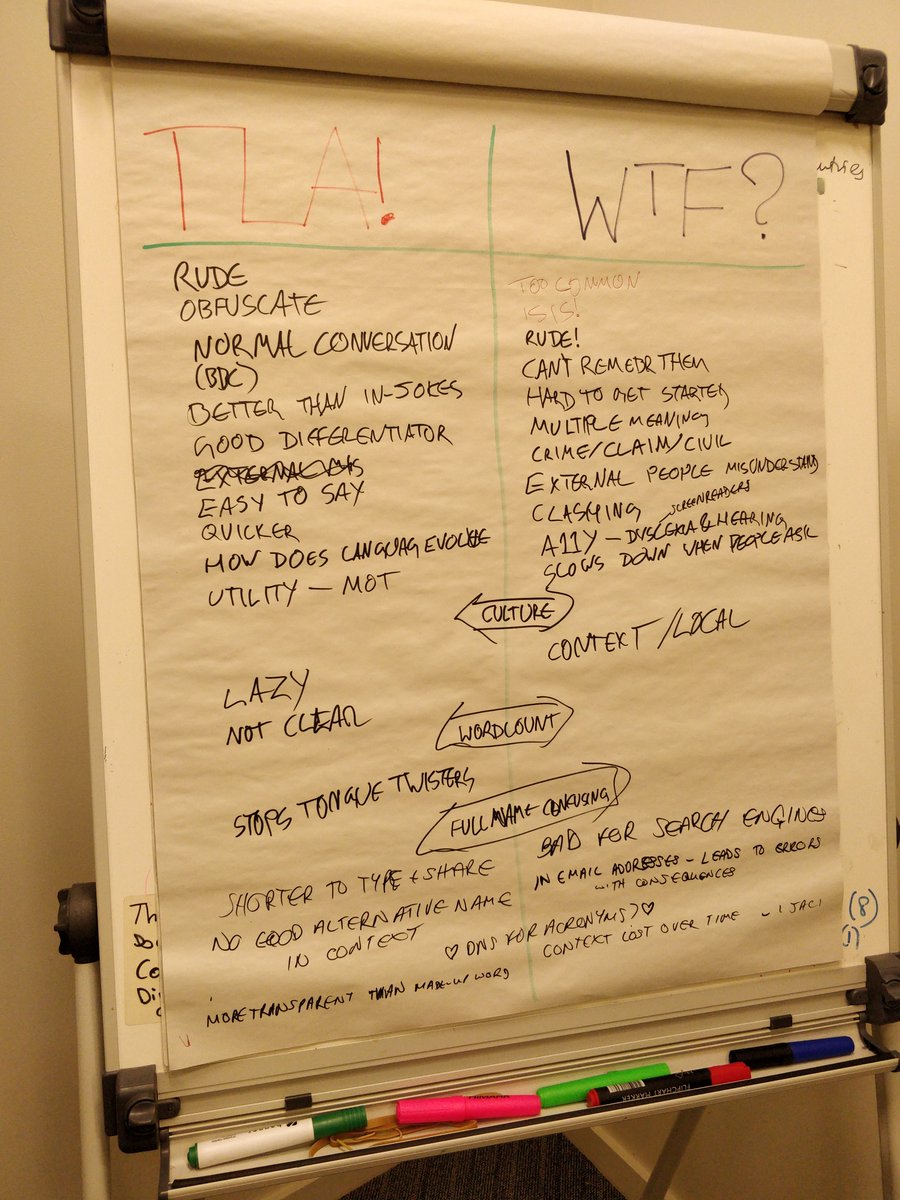 TLA!
RUDE
OBFUSCATE
NORMAL CONVERSATION
(BDC)
BETTER THAN IN-JOKES
GOOD DIFFERENTIATOR
EXTERNAL
EASY TO SAY
QUICKER
HOW DOES LANGUAG EVOLVE
UTILITY — MOT
LAZY
NOT CLEAR
STOPS TONGUE TWISTERS
SHORTER TO TYPE + SHARE
NO GOOD ALTERNATIVE NAME
IN CONTEXT
MORE TRANSPARENT THAN MADE-UP WORD
CULTURE
WORDCOUNT
FULL NAME CONFUSING
♡ DNS FOR ACRONYMS ♡
WTF?
TOO COMMON
ISIS!
RUDE!
CAN'T REMEBR THEM
HARD TO GET STARTED
MULTIPLE MEANING
CRIME/CLAIM/CIVIL
EXTERNAL PEOPLE MISUNDERSTAND
CLASHING
SCREENREADERS
A11Y — DYSLEXIA & HEARING
SLOWS DOWN WHEN PEOPLE ASK
CONTEXT / LOCAL
BAD FOR SEARCH ENGINES
IN EMAIL ADDRESSES - LEADS TO ERRORS
WITH CONSEQUENCES
CONTEXT LOST OVER TIME
(8)
Th
Co
Di
FLIPCHART MARKER